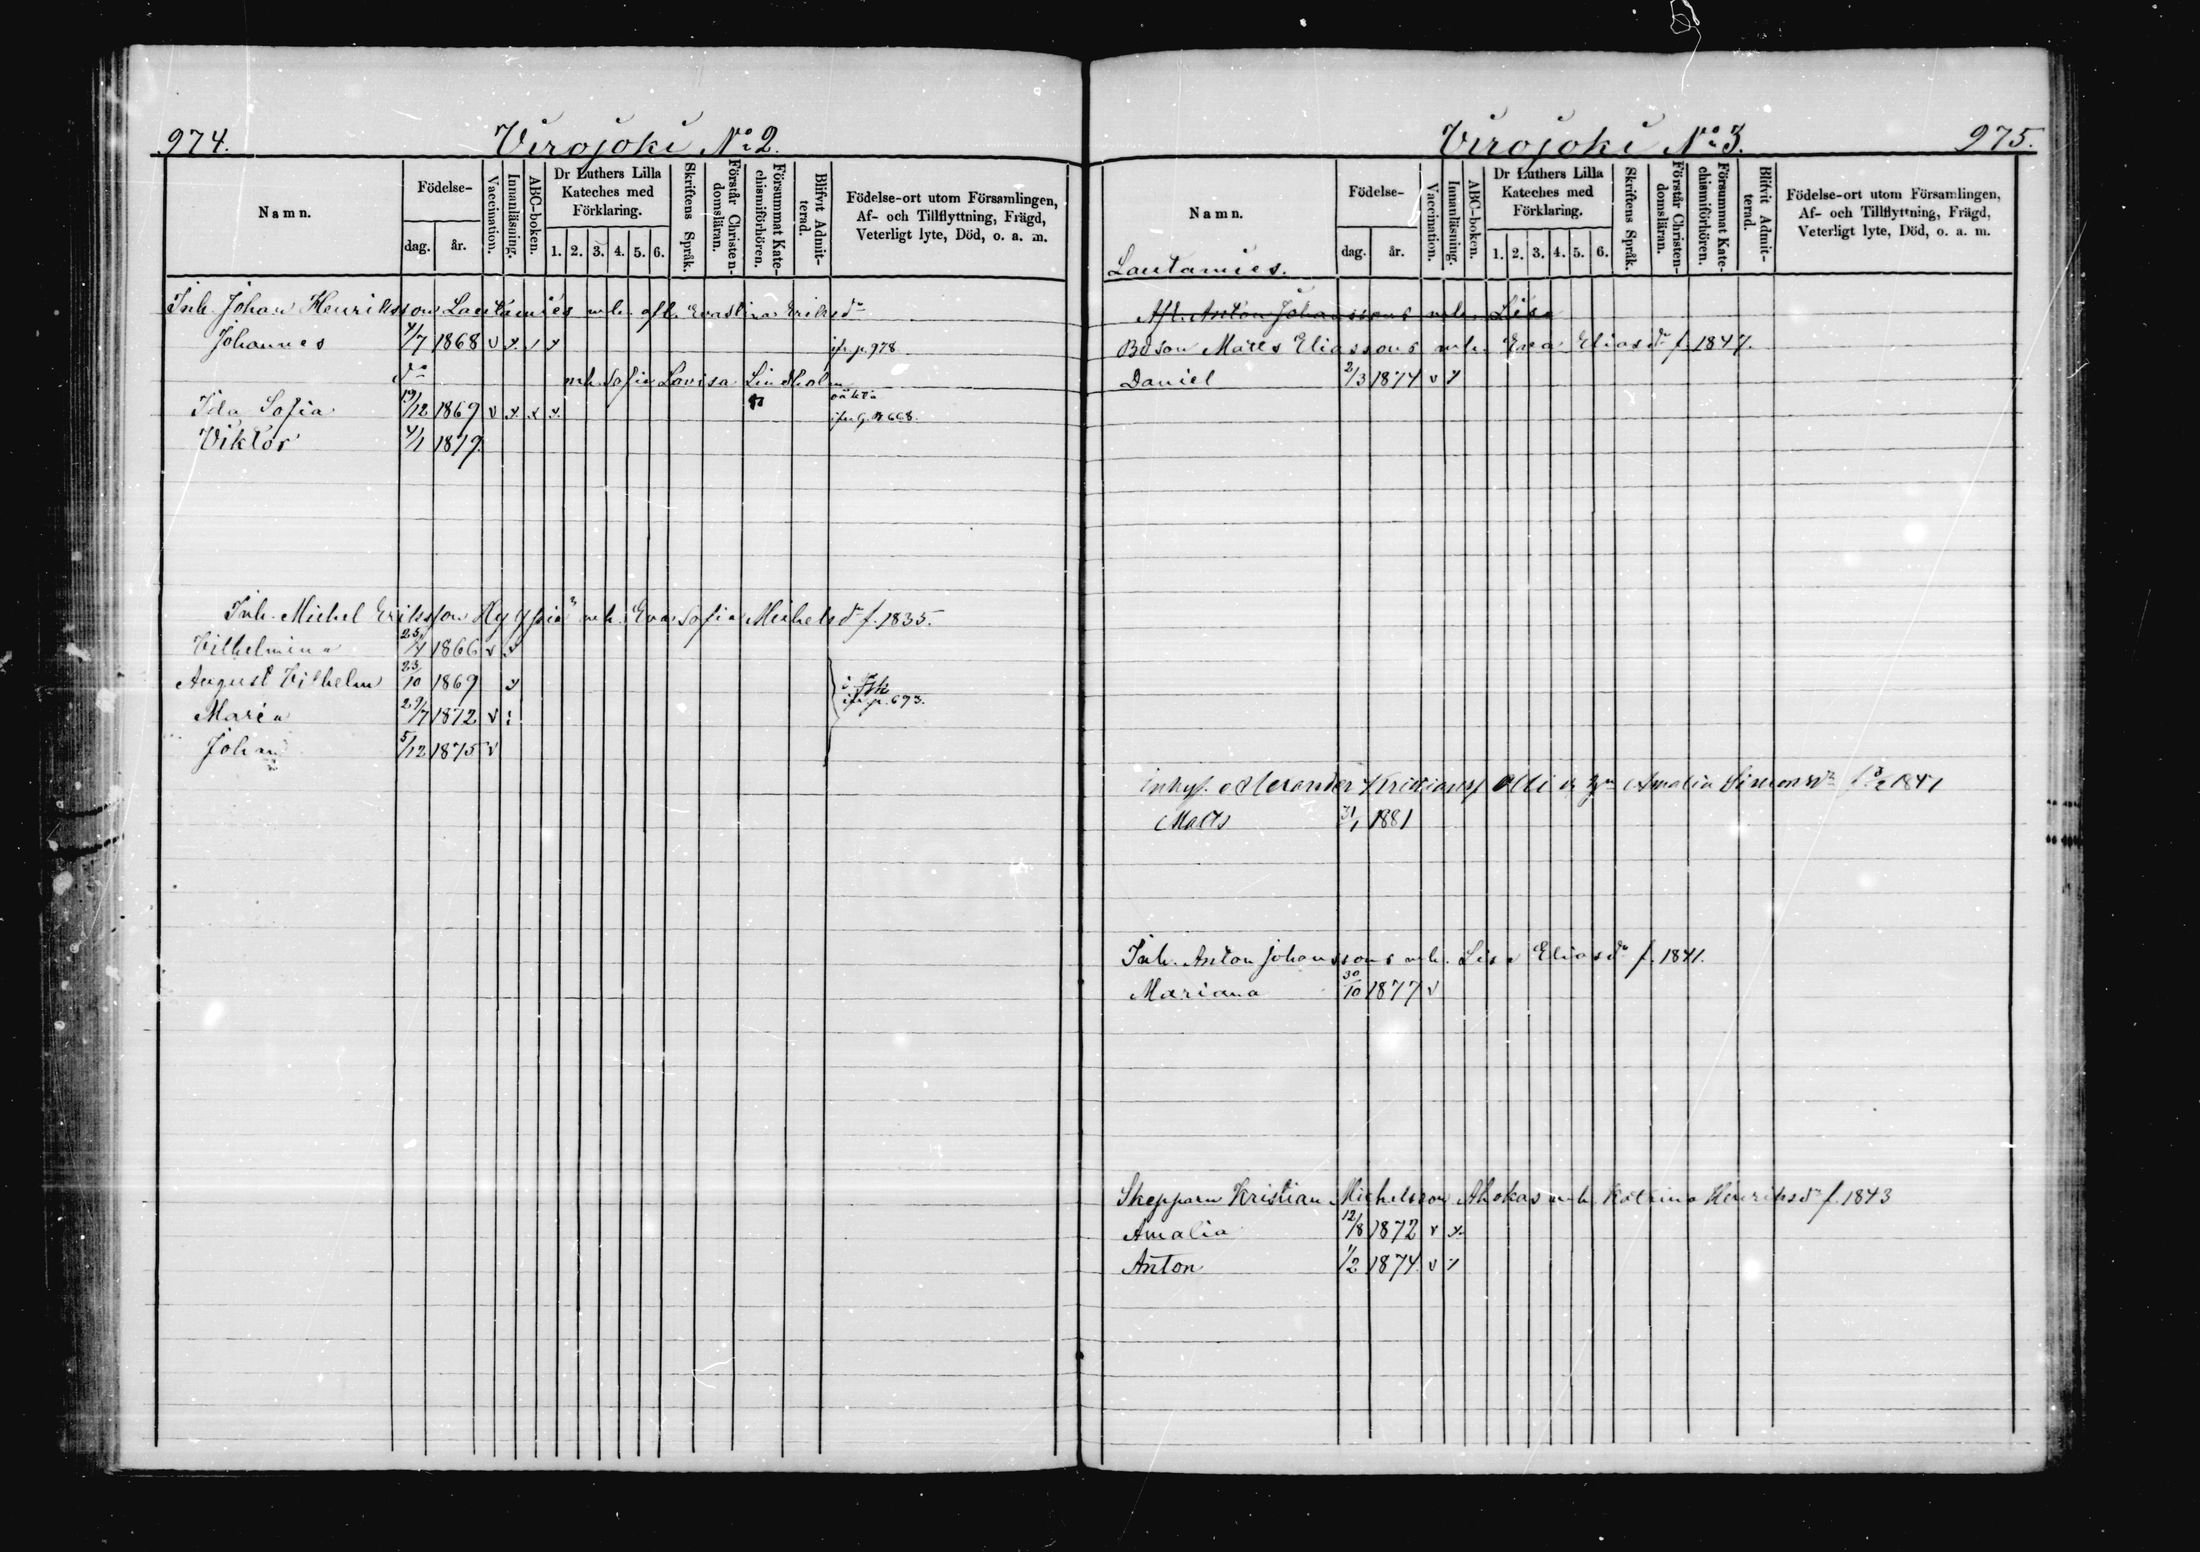 974.
Virojoki No 2.
Namn.
Födelse-
dag.
år.
Vaccination.
Innanläsning.
ABC-boken.
Dr Luthers Lilla
Kateches med
Förklaring.
1. 2. 3. 4. 5. 6.
Skriftens Språk.
Förstår Christen-
domsläran.
Försummat Kate-
chismiförhören.
Blifvit Admit-
terad.
Födelse-ort utom Församlingen,
Af- och Tillflyttning, Frägd,
Veterligt lyte, Död, o. a. m.
Inh. Johan Henriksson Lautamies Evastina Eriksdr
Johannes 4/7 1868 v x x x p. 978
do Sofia Lovisa Lindholm
oäkta
Ida Sofia 19/12 1869 v x x x 668.
Viktor 4/1 1879.
Inh. Michel Eriksson Eva Sofia Michelsdr f. 1835.
Vilhelmina 25/7 1866 v x
August Vilhelm 23/10 1869 x
Maria 29/7 1872 v p. 693.
Johan 5/12 1875 v
Virojoki No 3.
975.
Namn.
Födelse-
dag.
år.
Vaccination.
Innanläsning.
ABC-boken.
Dr Luthers Lilla
Kateches med
Förklaring.
1. 2. 3. 4. 5. 6.
Skriftens Språk.
Förstår Christen-
domsläran.
Försummat Kate-
chismiförhören.
Blifvit Admit-
terad.
Födelse-ort utom Församlingen,
Af- och Tillflyttning, Frägd,
Veterligt lyte, Död, o. a. m.
Lautamies.
Anton Johanssons Lisa
Bdson Matts Eliassons Eva Eliasdr f. 1847.
Daniel 2/3 1874 v x
Alexander Olli Amalia Simonsdr
Matts 31/1 1881
Inh. Anton Johanssons Lisa Eliasdr f. 1841.
Mariana 30/10 1877 v
Skepparn Kristian Michelsson Ahokas Katrina Henriksdr f. 1843
Amalia 12/8 1872 v x
Anton 1/2 1874 v x